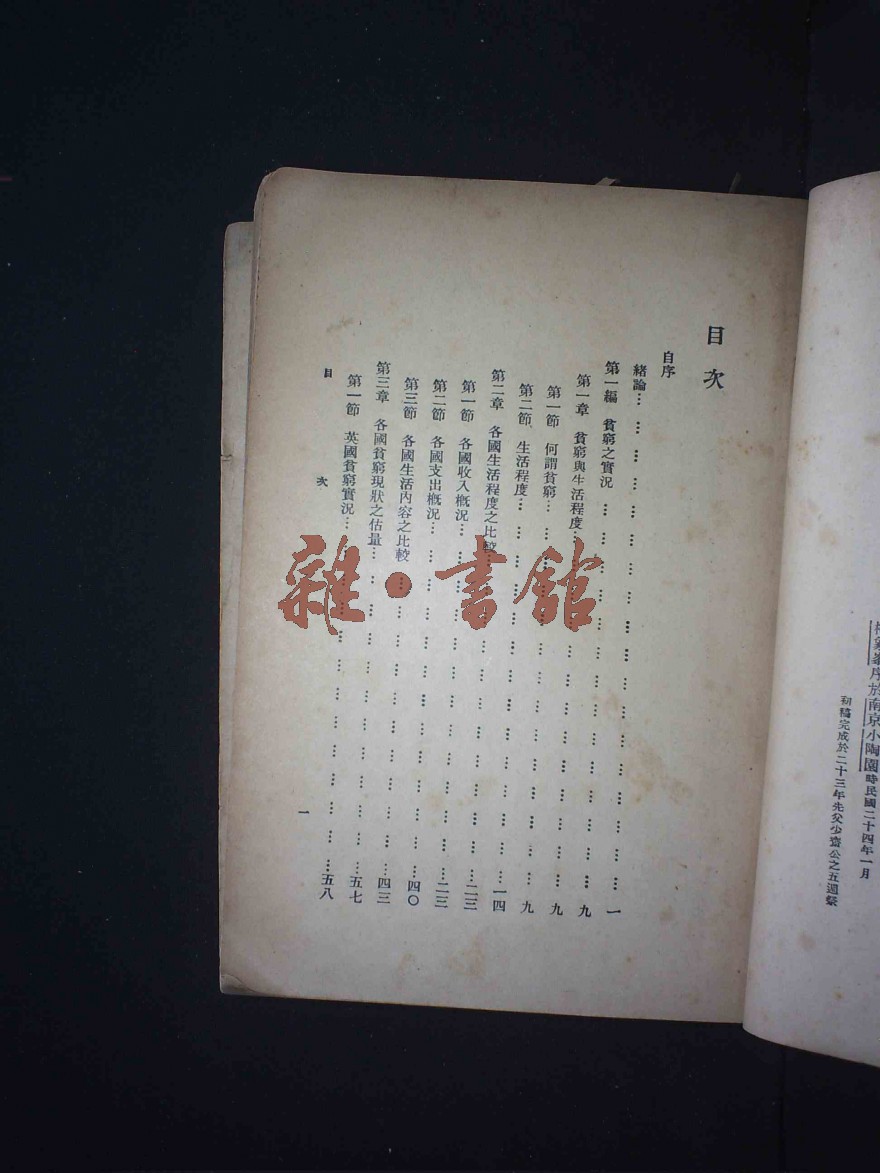 序於南京小陶園時民國二十四年一月
初稿完成於二十三年先父少齋公之五週祭
目次
自序
緒論…………一
第一編 貧窮之實況…………九
第一章 貧窮與生活程度…………九
第一節 何謂貧窮…………九
第二節 生活程度…………一四
第二章 各國生活程度之比較…………二三
第一節 各國收入概況…………二三
第二節 各國支出概況…………四〇
第三節 各國生活內容之比較…………四三
第三章 各國貧窮現狀之估量…………五七
第一節 英國貧窮實況…………五八
目次
一
雜·書館